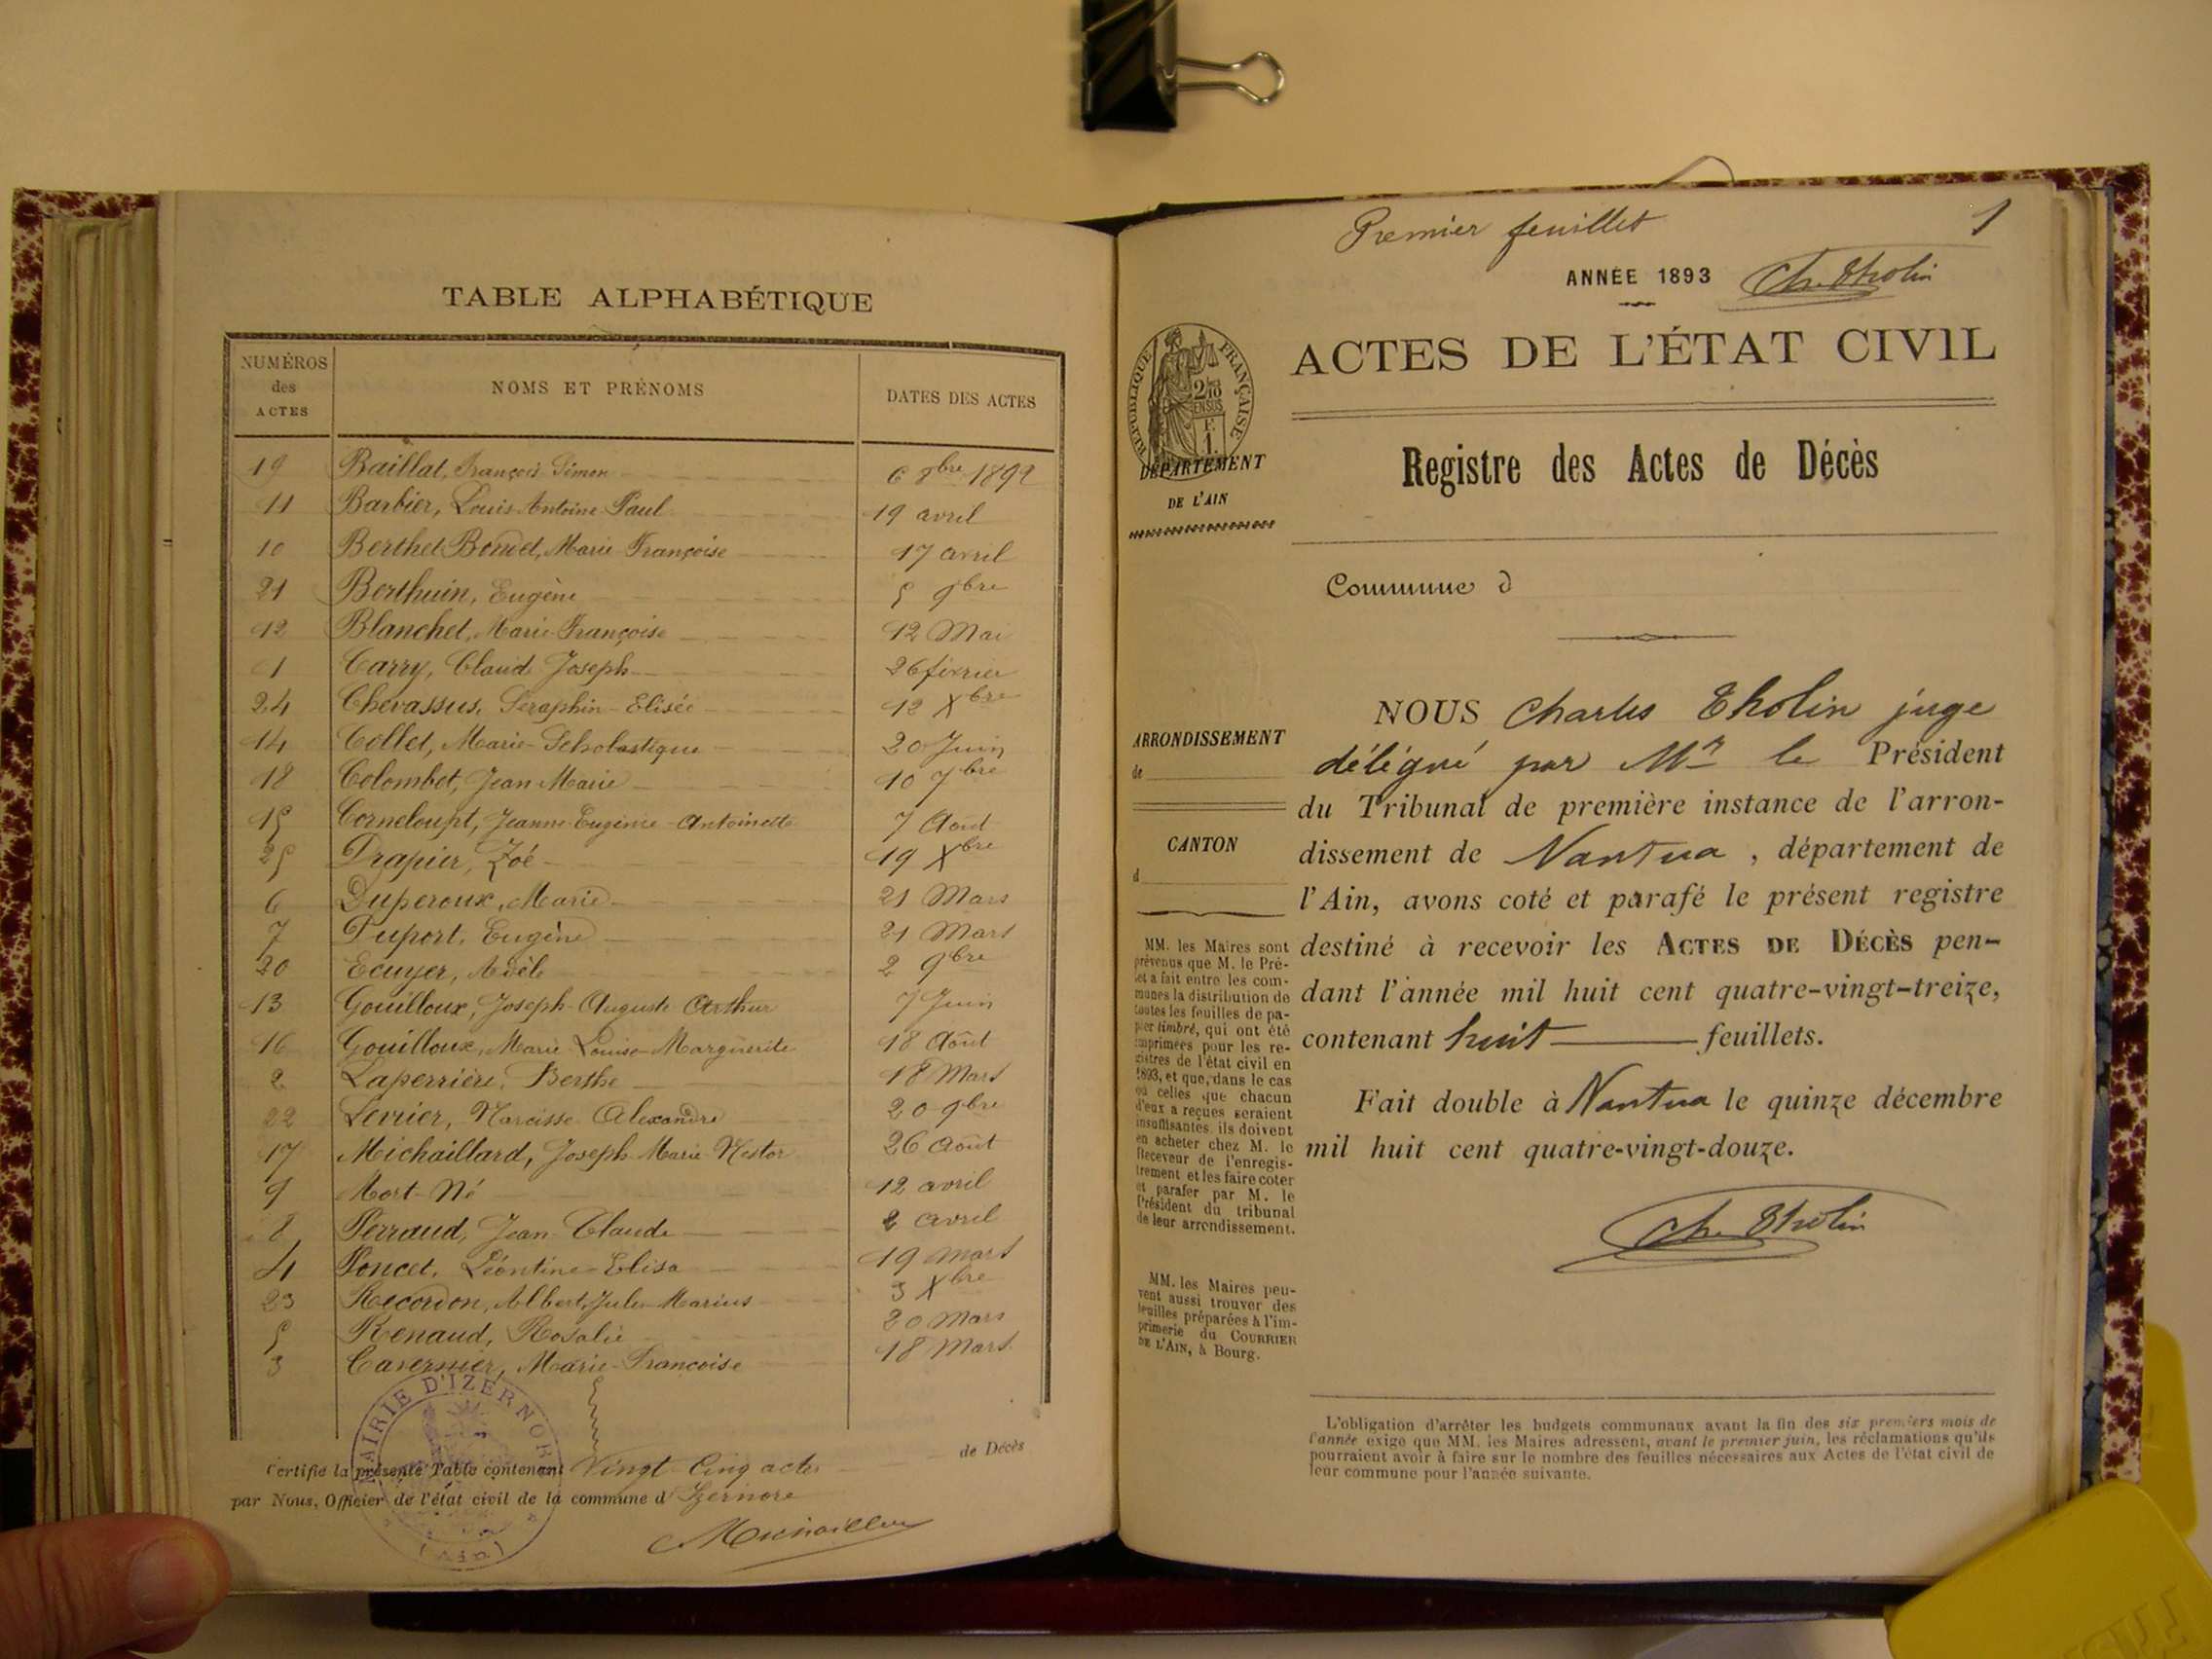 TABLE ALPHABÉTIQUE
NUMÉROS des ACTES NOMS ET PRÉNOMS DATES DES ACTES
19 Baillat, François Simon 6 8bre 1892
11 Barbier, Louis Antoine Paul 19 avril
10 Berthet Bondet, Marie Françoise 17 avril
21 Berthuin, Eugène 5 9bre
12 Blanchet, Marie Françoise 12 Mai
1 Carry, Claude Joseph 26 février
24 Chevassus, Séraphin Elisée 12 Xbre
14 Collet, Marie-Scholastique 20 Juin
18 Colombet, Jean Marie 10 7bre
15 Corneloupt, Jeanne Eugénie Antoinette 7 Août
25 Drapier, Zoé 19 Xbre
6 Duperoux, Marie 21 Mars
7 Duport, Eugène 21 Mars
20 Ecuyer, Adèle 2 9bre
13 Gouilloux, Joseph Auguste Arthur 7 Juin
16 Gouilloux, Marie Louise Marguerite 18 Août
2 Laperrière, Berthe 18 Mars
22 Levrier, Narcisse Alexandre 20 9bre
17 Michaillard, Joseph Marie Nestor 26 Août
9 Mort-Né 12 avril
8 Perraud, Jean Claude 2 avril
4 Poncet, Léontine Elisa 19 mars
23 Recordon, Albert Jules Marius 3 Xbre
5 Renaud, Rosalie 20 Mars
3 Tavernier, Marie Françoise 18 Mars
Certifie la présente Table contenant Vingt Cinq actes de Décès
par Nous, Officier de l'état civil de la commune d'Izernore
MAIRIE D'IZERNORE
(Ain)
Premier feuillet 1
ANNÉE 1893 Ch. Tholin
RÉPUBLIQUE FRANÇAISE
ACTES DE L'ÉTAT CIVIL
DÉPARTEMENT
DE L'AIN
Registre des Actes de Décès
Commune d
ARRONDISSEMENT
de
CANTON
d
NOUS Charles Tholin juge
délégué par Mr le Président
du Tribunal de première instance de l'arron-
dissement de Nantua, département de
l'Ain, avons coté et parafé le présent registre
destiné à recevoir les ACTES DE DÉCÈS pen-
dant l'année mil huit cent quatre-vingt-treize,
contenant huit feuillets.
Fait double à Nantua le quinze décembre
mil huit cent quatre-vingt-douze.
Ch. Tholin
MM. les Maires sont
prévenus que M. le Pré-
fet a fait entre les com-
munes la distribution de
toutes les feuilles de pa-
pier timbré, qui ont été
imprimées pour les re-
gistres de l'état civil en
1893, et que, dans le cas
où celles que chacun
d'eux a reçues seraient
insuffisantes, ils doivent
en acheter chez M. le
Receveur de l'enregis-
trement et les faire coter
et parafer par M. le
Président du tribunal
de leur arrondissement.
MM. les Maires peu-
vent aussi trouver des
feuilles préparées à l'im-
primerie du COURRIER
DE L'AIN, à Bourg.
L'obligation d'arrêter les budgets communaux avant la fin des six premiers mois de
l'année exige que MM. les Maires adressent, avant le premier juin, les réclamations qu'ils
pourraient avoir à faire sur le nombre des feuilles nécessaires aux Actes de l'état civil de
leur commune pour l'année suivante.